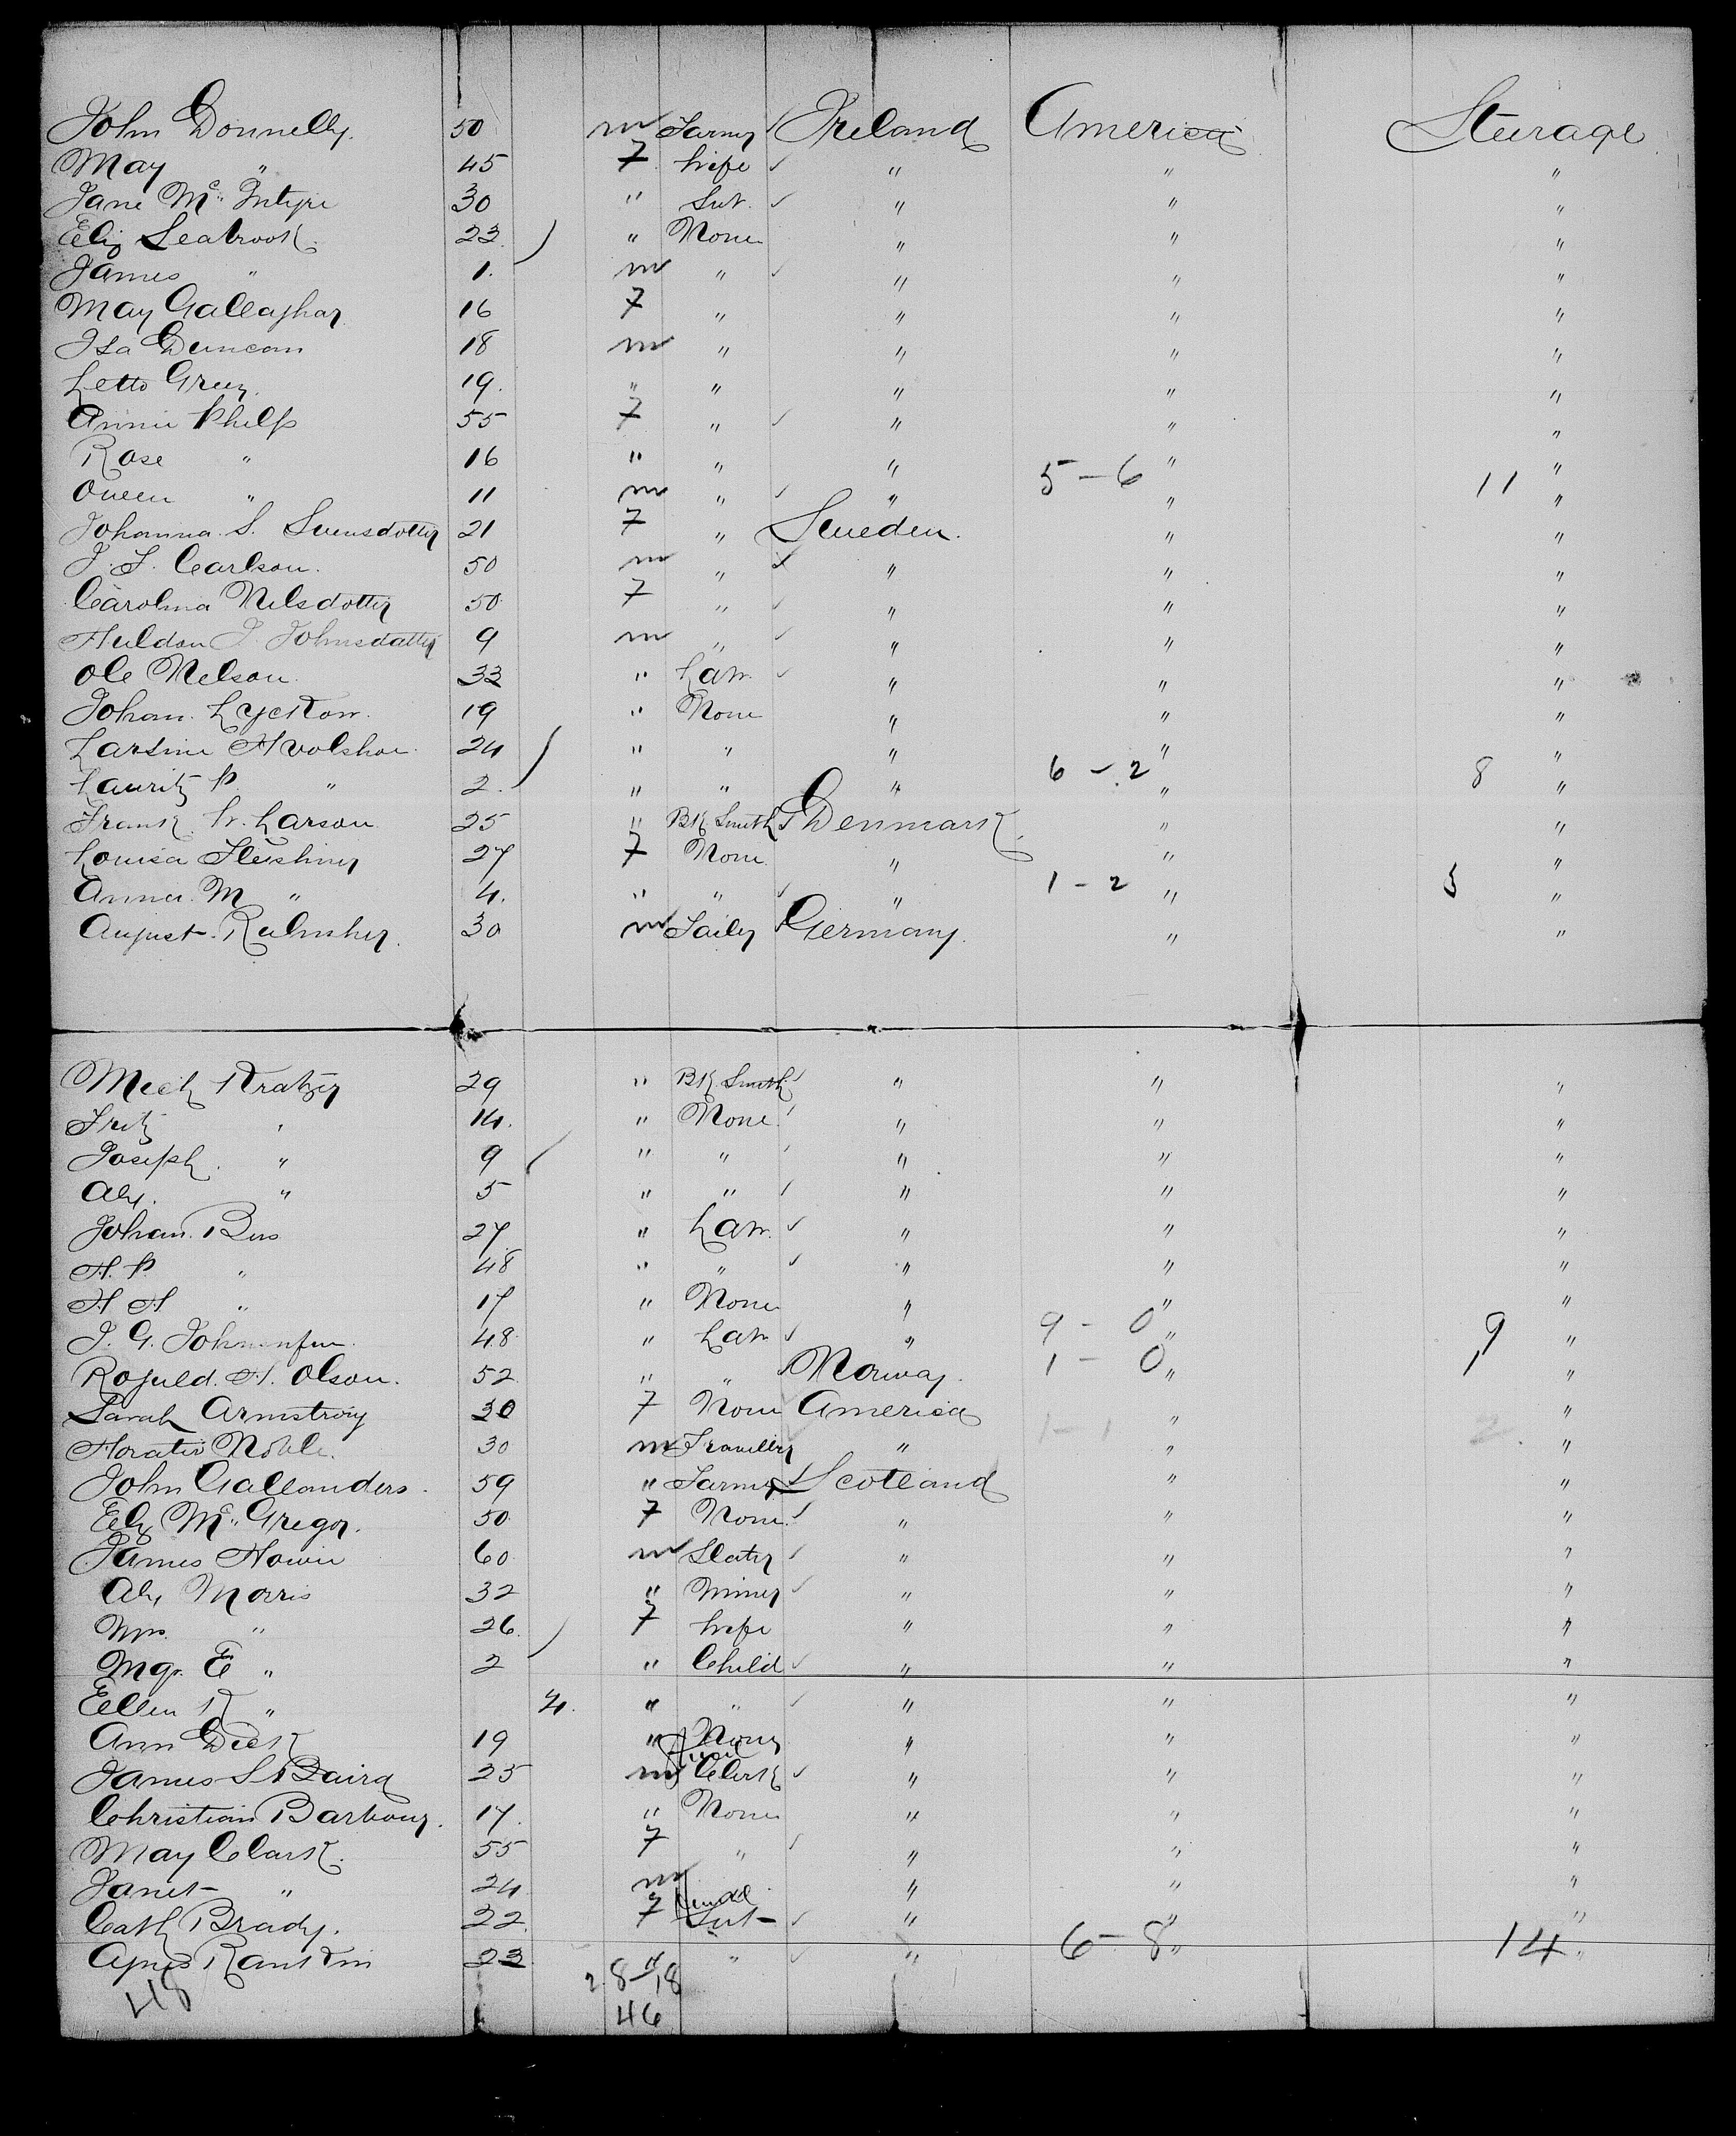 John Donnelly. 50 m Farmer ✓ Ireland America Steerage
May " 45 F Wife ✓ " " "
Jane Mc Intyre 30 " Srvt. ✓ " " "
Eliz Seabrook 23 " None " " "
James " 1. m " ✓ " " "
May Gallagher 16 F " " " "
Isa Duncan 18 m " " " "
Letto Green 19. " " " " "
Annie Phelps 55 F " ✓ " " "
Rose " 16 " " " 5-6 " "
Owen " 11 m " ✓ " " 11 "
Johanna S. Svensdotter 21 F " Sweden. " "
J. F. Carlson. 50 m " ✓ " " "
Carolina Nelsdotter 50 F " ✓ " " "
Huldon J. Johnsdatter 9 m " ✓ " " "
Ole Nelson. 33 " Labr. ✓ " " "
Johan. 19 " None " " "
Larsine 24 " " " " "
Lauritz P. " 2. " " " 6-2 " 8 "
Frank W. Larson 25 " Blk Smith ✓ Denmark " "
Louisa 27 F None " " "
Anna. M " 4. " " ✓ " 1-2 " 3 "
August. 30 m Sailer Germany. " "
Kratzer 29 " Blk Smith ✓ " " "
Fritz " 14. " None ✓ " " "
Joseph. " 9 " " ✓ " " "
Alex. " 5 " " ✓ " " "
Johan. 27 " Labr. ✓ " " "
H. P. " 48 " " ✓ " " "
H H " 17 " None " " "
J. G. 48 " Labr ✓ " 9-0 " 9 "
H. Olson. 52 " " ✓ Norway. 1-0 " 1 "
Sarah Armstrong 30 F None America " "
Horatio Noble. 30 m Traveller " 1-1 " 2. "
John Gallanders. 59 " Farmer ✓ Scotland " "
Eliz Mc Gregor. 50 F None. ✓ " " "
James Howie 60 m Slater ✓ " " "
Alex Morris 32 " Miner ✓ " " "
Mrs. " 26. F Wife " " "
Mgr. E " 2 " Child ✓ " " "
Ellen K " 4. " " ✓ " " "
Ann Dick 19 " None " " "
James S Baird 25 m Clerk ✓ " " "
Christian Barbour. 17. " None " " "
May Clark. 55 F " ✓ " " "
Janet " 24 m " " "
Cath Brady. 22. F Srvt ✓ " " "
Agnes Rankin 23 " " ✓ " 6-8 " 14 "
48 28-18
46